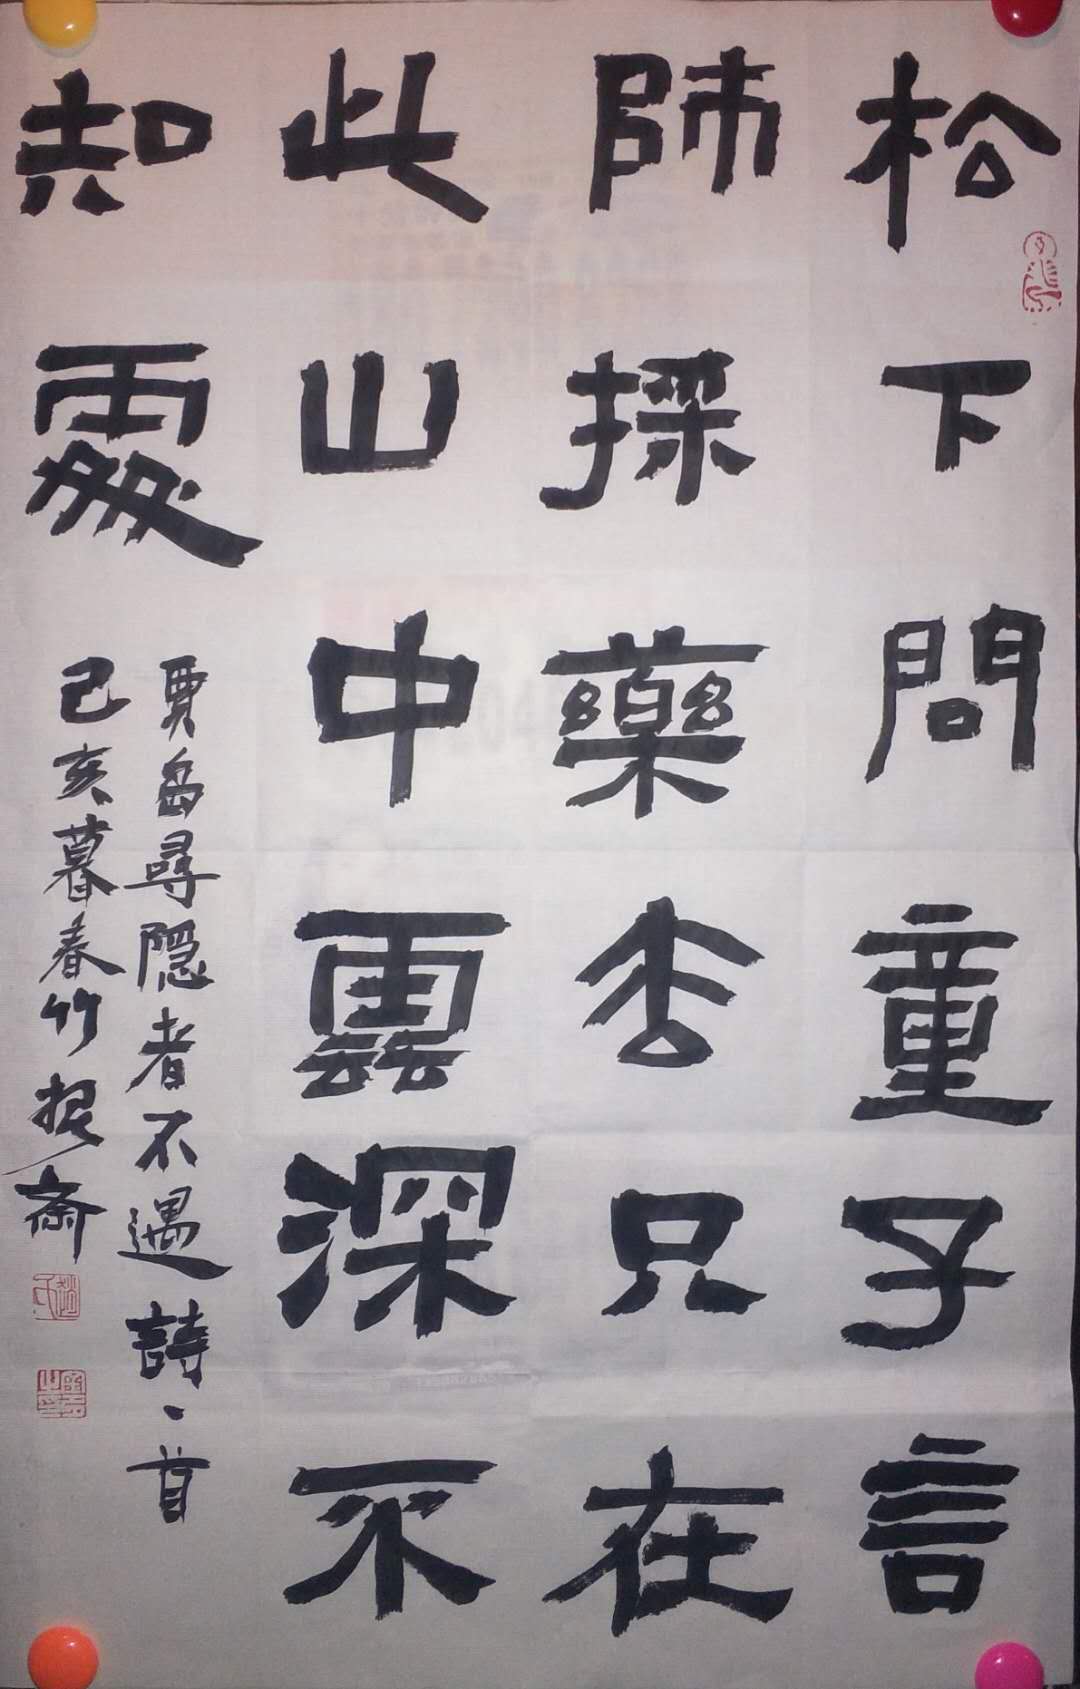 松下問童子言
師採藥去只在
此山中雲深不
知處
賈島尋隐者不遇詩一首
己亥暮春竹斋